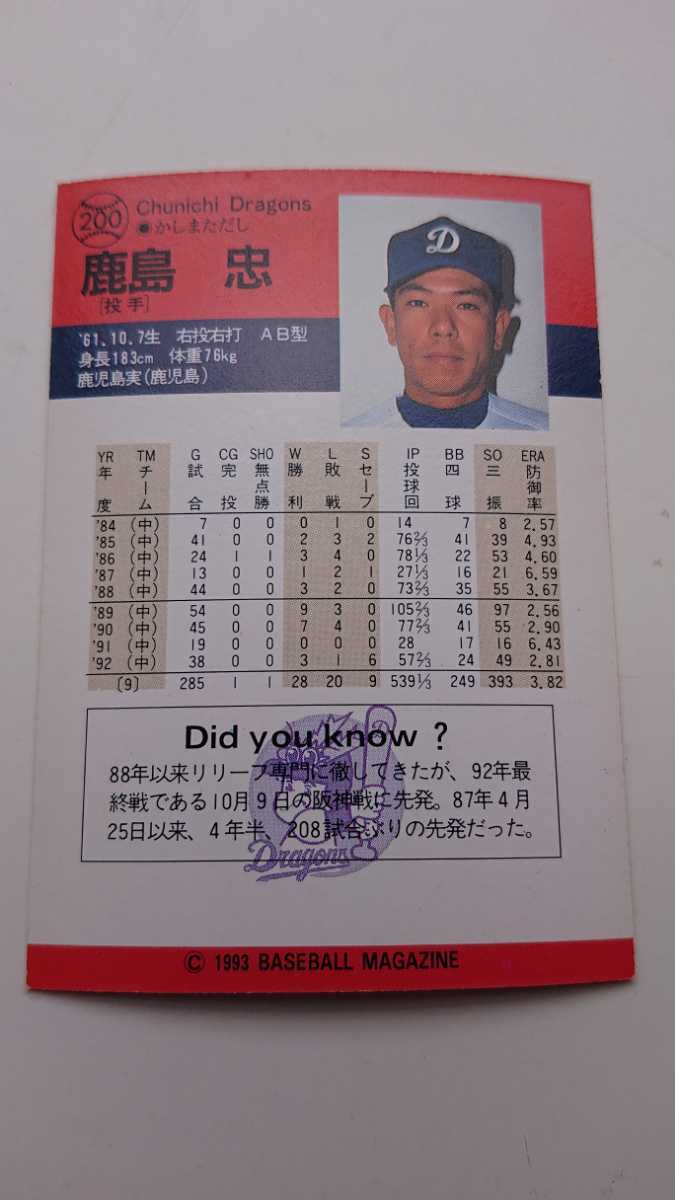 200
Chunichi Dragons
●かしまただし
鹿島 忠
[投手]
D
'61.10.7生 右投右打 AB型
身長183cm 体重76kg
鹿児島実(鹿児島)
YR TM G CG SHO W L S IP BB SO ERA
年度 チーム 試合 完投 無点勝 勝利 敗戦 セーブ 投球回 四球 三振 防御率
'84 (中) 7 0 0 0 1 0 14 7 8 2.57
'85 (中) 41 0 0 2 3 2 76⅔ 41 39 4.93
'86 (中) 24 1 1 3 4 0 78⅓ 22 53 4.60
'87 (中) 13 0 0 1 2 1 27⅓ 16 21 6.59
'88 (中) 44 0 0 3 2 0 73⅔ 35 55 3.67
'89 (中) 54 0 0 9 3 0 105⅔ 46 97 2.56
'90 (中) 45 0 0 7 4 0 77⅔ 41 55 2.90
'91 (中) 19 0 0 0 0 0 28 17 16 6.43
'92 (中) 38 0 0 3 1 6 57⅔ 24 49 2.81
(9) 285 1 1 28 20 9 539⅓ 249 393 3.82
Did you know ?
88年以来リリーフ専門に徹してきたが、92年最
終戦である10月9日の阪神戦に先発。87年4月
25日以来、4年半、208試合ぶりの先発だった。
Dragons
© 1993 BASEBALL MAGAZINE